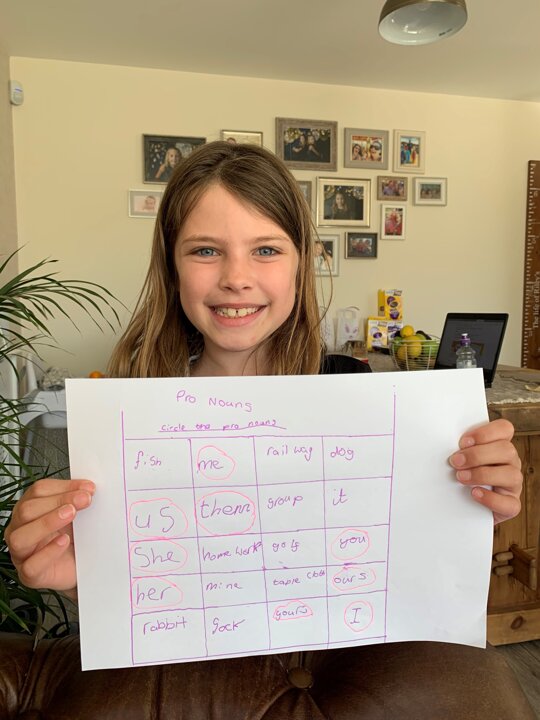 Pro Nouns
circle the pro nouns
fish me railway dog
us them group it
She homework golf you
her mine table cloth ours
rabbit sock yours I